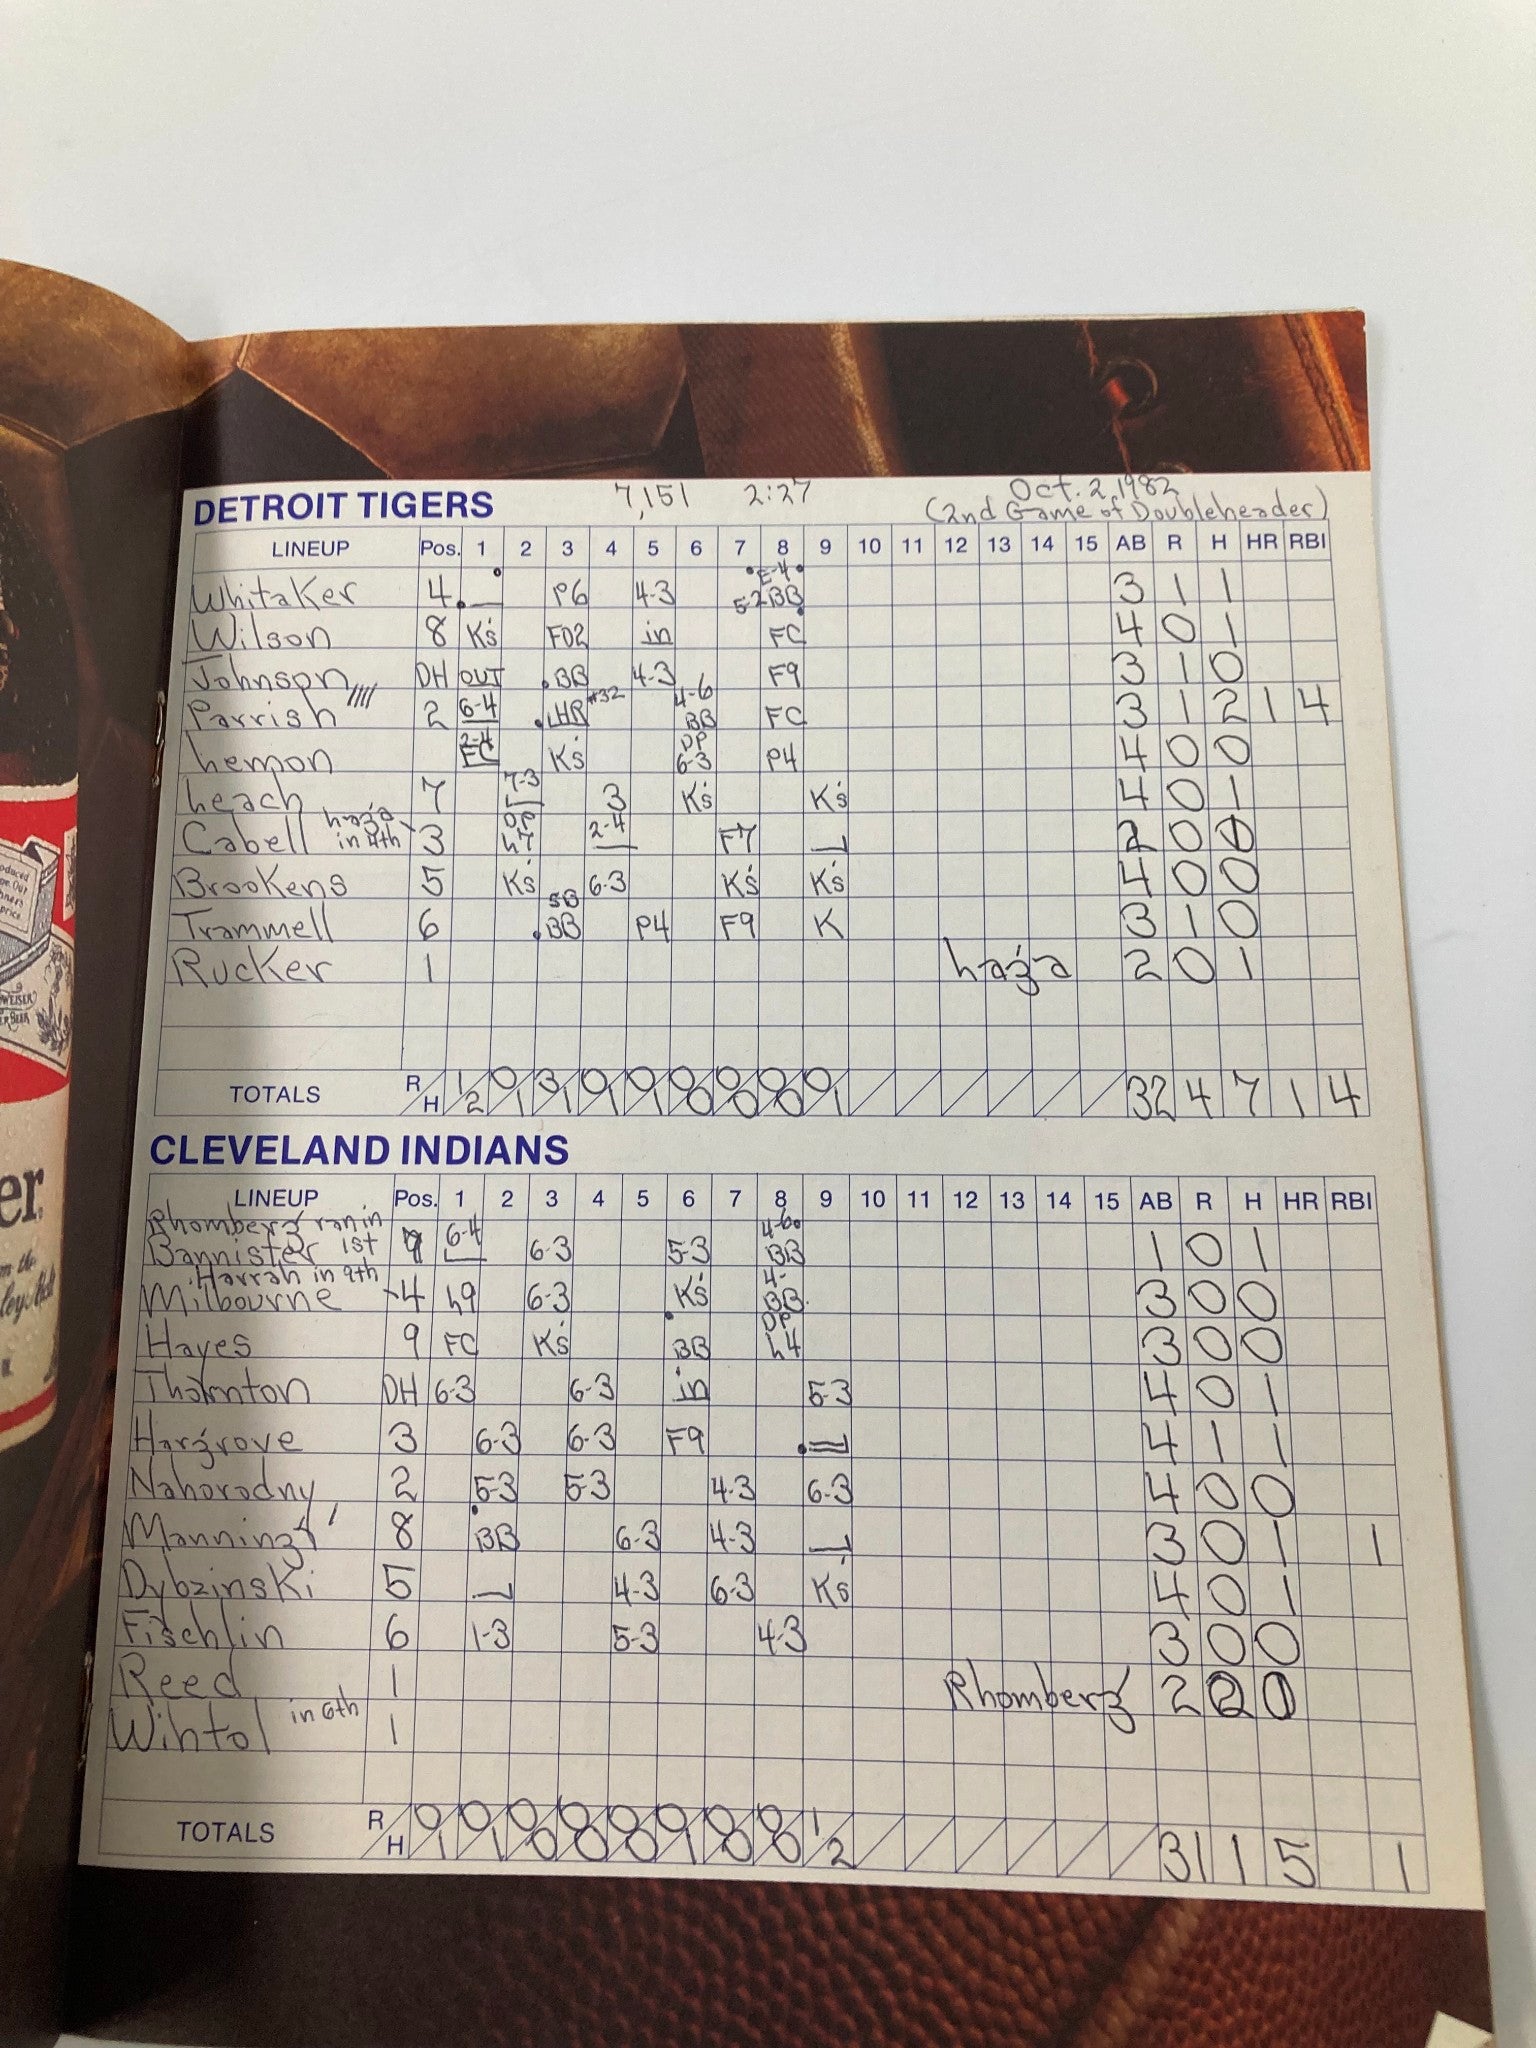 DETROIT TIGERS 7,151 2:27 Oct. 2, 1982
(2nd Game of Doubleheader)
LINEUP Pos. 1 2 3 4 5 6 7 8 9 10 11 12 13 14 15 AB R H HR RBI
Whitaker 4 P6 4-3 5-2 E-4 BB 3 1 1
Wilson 8 Ks FO2 in FC 4 0 1
Johnson DH OUT BB 4-3 F9 3 1 0
Parrish 2 6-4 HR #32 4-6 BB FC 3 1 2 1 4
Lemon 2-4 FC Ks DP 6-3 P4 4 0 0
Leach 7 7-3 3 Ks Ks 4 0 1
Cabell Laga in 4th 3 DP L7 2-4 F7 2 0 0
Brookens 5 Ks 6-3 Ks Ks 4 0 0
Trammell 6 SB BB P4 F9 K 3 1 0
Rucker 1 Laga 2 0 1
TOTALS R/H 1/2 0/1 3/1 0/1 0/1 0/0 0/0 0/0 0/1 32 4 7 1 4
CLEVELAND INDIANS
LINEUP Pos. 1 2 3 4 5 6 7 8 9 10 11 12 13 14 15 AB R H HR RBI
Rhomberg ran in 1st
Bannister 6-4 6-3 5-3 4-6 BB 1 0 1
Harrah in 9th
Milbourne 4 L9 6-3 Ks 4- BB 3 0 0
Hayes 9 FC Ks BB DP L4 3 0 0
Thornton DH 6-3 6-3 in 5-3 4 0 1
Hargrove 3 6-3 6-3 F9 4 1 1
Nahorodny 2 5-3 5-3 4-3 6-3 4 0 0
Manning 8 BB 6-3 4-3 3 0 1 1
Dybzinski 5 4-3 6-3 Ks 4 0 1
Fischlin 6 1-3 5-3 4-3 3 0 0
Reed 1 Rhomberg 2 0
Wihtol in 6th 1
TOTALS R/H 0/1 0/1 0/0 0/0 0/0 0/1 0/0 0/0 1/2 31 1 5 1
er.